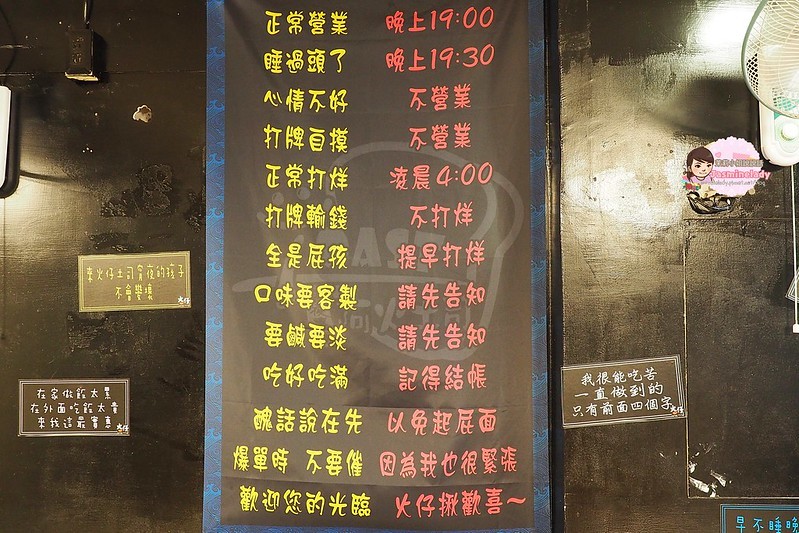 正常營業 晚上19:00
睡過頭了 晚上19:30
心情不好 不營業
打牌自摸 不營業
正常打烊 凌晨4:00
打牌輸錢 不打烊
全是屁孩 提早打烊
口味要客製 請先告知
要鹹要淡 請先告知
吃好吃滿 記得結帳
醜話說在先 以免起屁面
爆單時 不要催 因為我也很緊張
歡迎您的光臨 火仔揪歡喜~
來火仔土司宵夜的孩子
不會變壞
火仔
在家做飯太累
在外面吃飯太貴
來我這最實惠
火仔
我很能吃苦
一直做到的
只有前面四個字
火仔
Yasminelady
早不睡晚